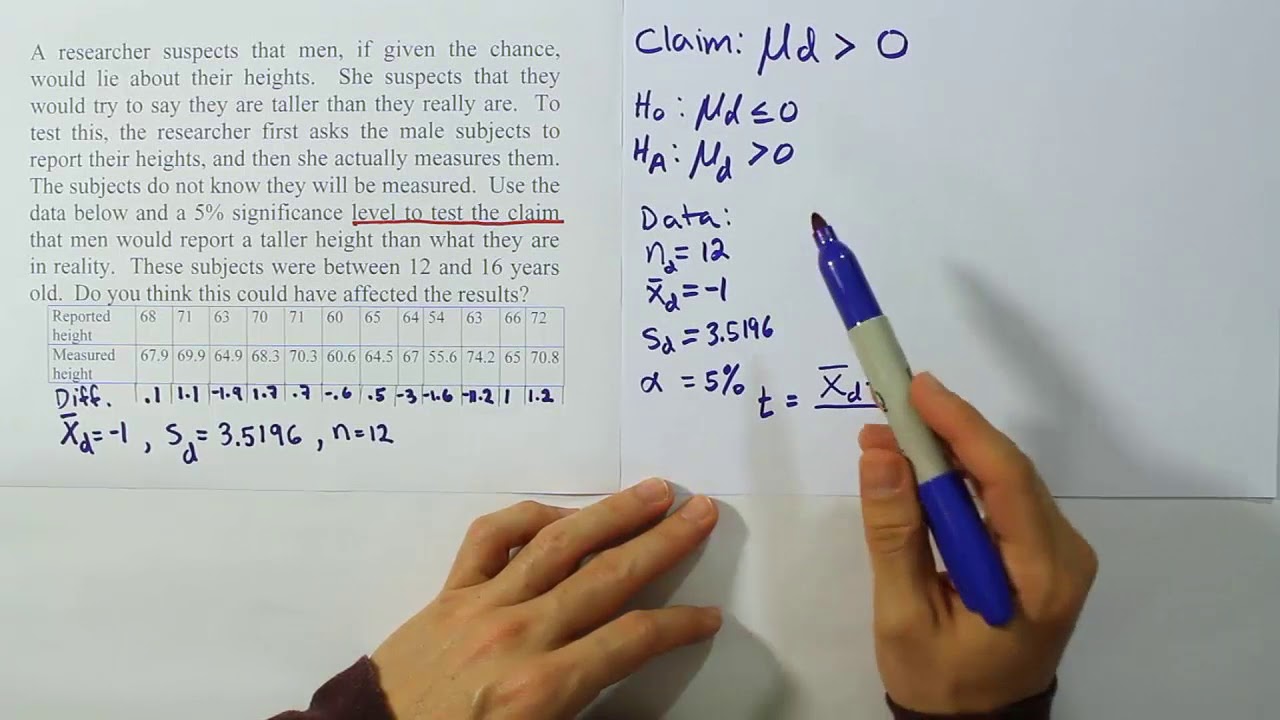 A researcher suspects that men, if given the chance,
would lie about their heights. She suspects that they
would try to say they are taller than they really are. To
test this, the researcher first asks the male subjects to
report their heights, and then she actually measures them.
The subjects do not know they will be measured. Use the
data below and a 5% significance level to test the claim
that men would report a taller height than what they are
in reality. These subjects were between 12 and 16 years
old. Do you think this could have affected the results?
Reported height 68 71 63 70 71 60 65 64 54 63 66 72
Measured height 67.9 69.9 64.9 68.3 70.3 60.6 64.5 67 55.6 74.2 65 70.8
Diff. .1 1.1 -1.9 1.7 .7 -.6 .5 -3 -1.6 -11.2 1 1.2
x̄d = -1 , Sd = 3.5196 , n = 12
Claim: μd > 0
H0 : μd ≤ 0
HA : μd > 0
Data:
nd = 12
x̄d = -1
Sd = 3.5196
α = 5%
t = x̄d